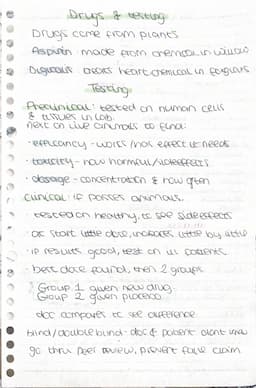 Drugs & testing
Drugs come from plants
Aspirin made from chemical in willow
Digitalis treats heart chemical in foxgloves
Testing
Preclinical: tested on human cells
& tissues in lab.
next on live animals to find:
· efficiency - works/has effect it needs
· toxicity - how harmful/side effects
· dosage - concentration & how often
Clinical: if passes animals.
· tested on healthy, to see side effects
· at start little dose, increases little by little
· if results good, test on ill patients
· best dose found, then 2 groups
Group 1 given new drug
Group 2 given placebo
doc compares to see difference
blind/double blind - doc & patient dont know
go thru peer review, prevent false claim